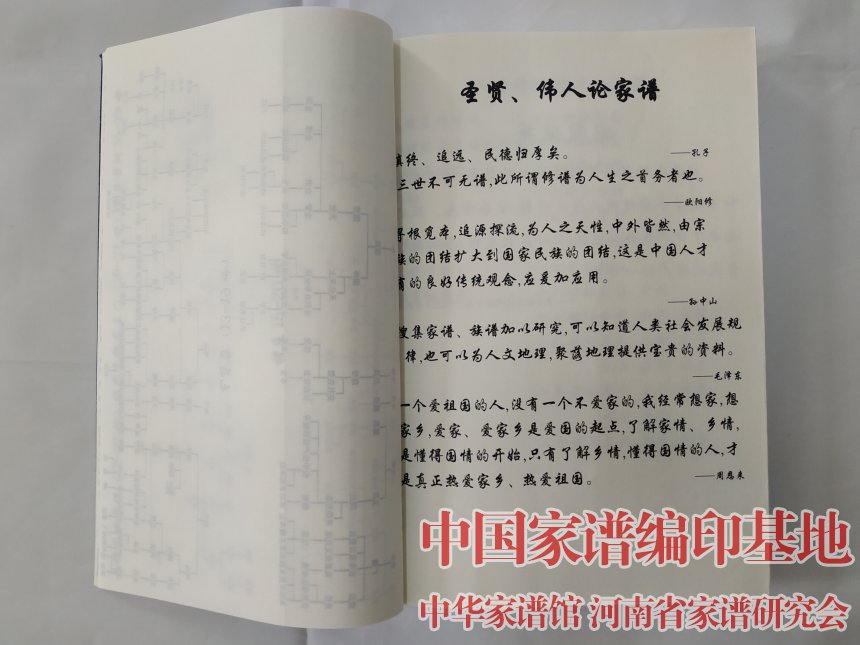 圣贤、伟人论家谱
慎终、追远、民德归厚矣。 ——孔子
三世不可无谱,此所谓修谱为人生之首务者也。
——欧阳修
寻根觅本,追源探流,为人之天性,中外皆然,由宗
族的团结扩大到国家民族的团结,这是中国人才
有的良好传统观念,应爱加应用。
——孙中山
搜集家谱、族谱加以研究,可以知道人类社会发展规
律,也可以为人文地理,聚落地理提供宝贵的资料。
——毛泽东
一个爱祖国的人,没有一个不爱家的,我经常想家,想
家乡,爱家、爱家乡是爱国的起点,了解家情、乡情,
是懂得国情的开始,只有了解乡情,懂得国情的人,才
是真正热爱家乡、热爱祖国。 ——周恩来
中国家谱编印基地
中华家谱馆 河南省家谱研究会